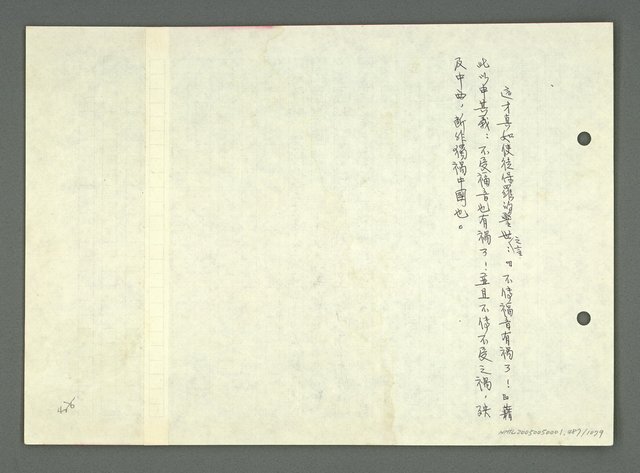 這才真如使徒保羅的警世之言：『不傳福音有禍了！』藉
此以申其義：不受福音也有禍了！並且不傳不受之禍，殃
及中西，斷非獨禍中國也。
406
NMTL20050050001,487/1079